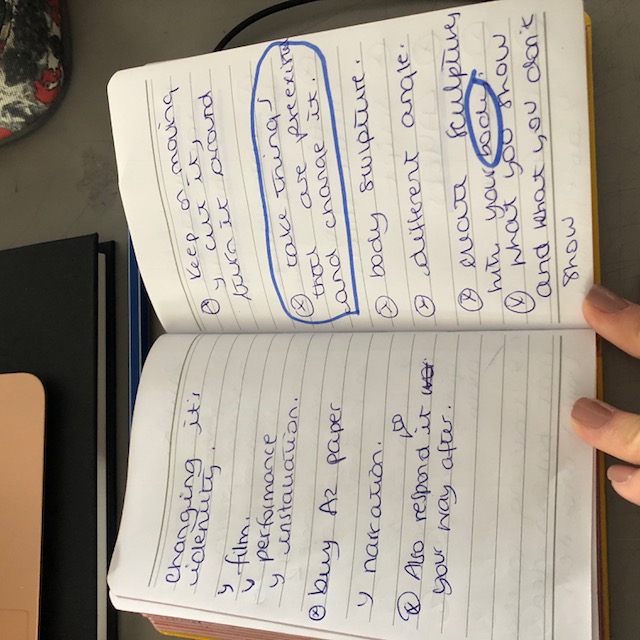 Changing it's
identity.
film.
performance
installation.
buy A2 paper
narration.
Also respond to it
your way after.
keep on moving
cut it,
turn it around
take things
that are
and change it.
body sculpture.
different angle.
create sculptures
with your body.
what you show
and what you don't
show